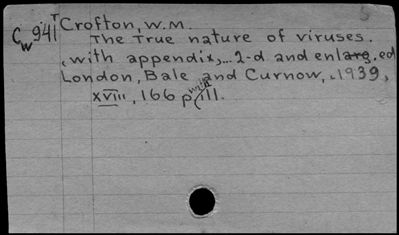 5
Cw941T Crofton, W.M.
The True nature of viruses.
, with appendix,... 2-d and enlarg. ed
London, Bale and Curnow, c1939,
XVIII, 166 p. ill.